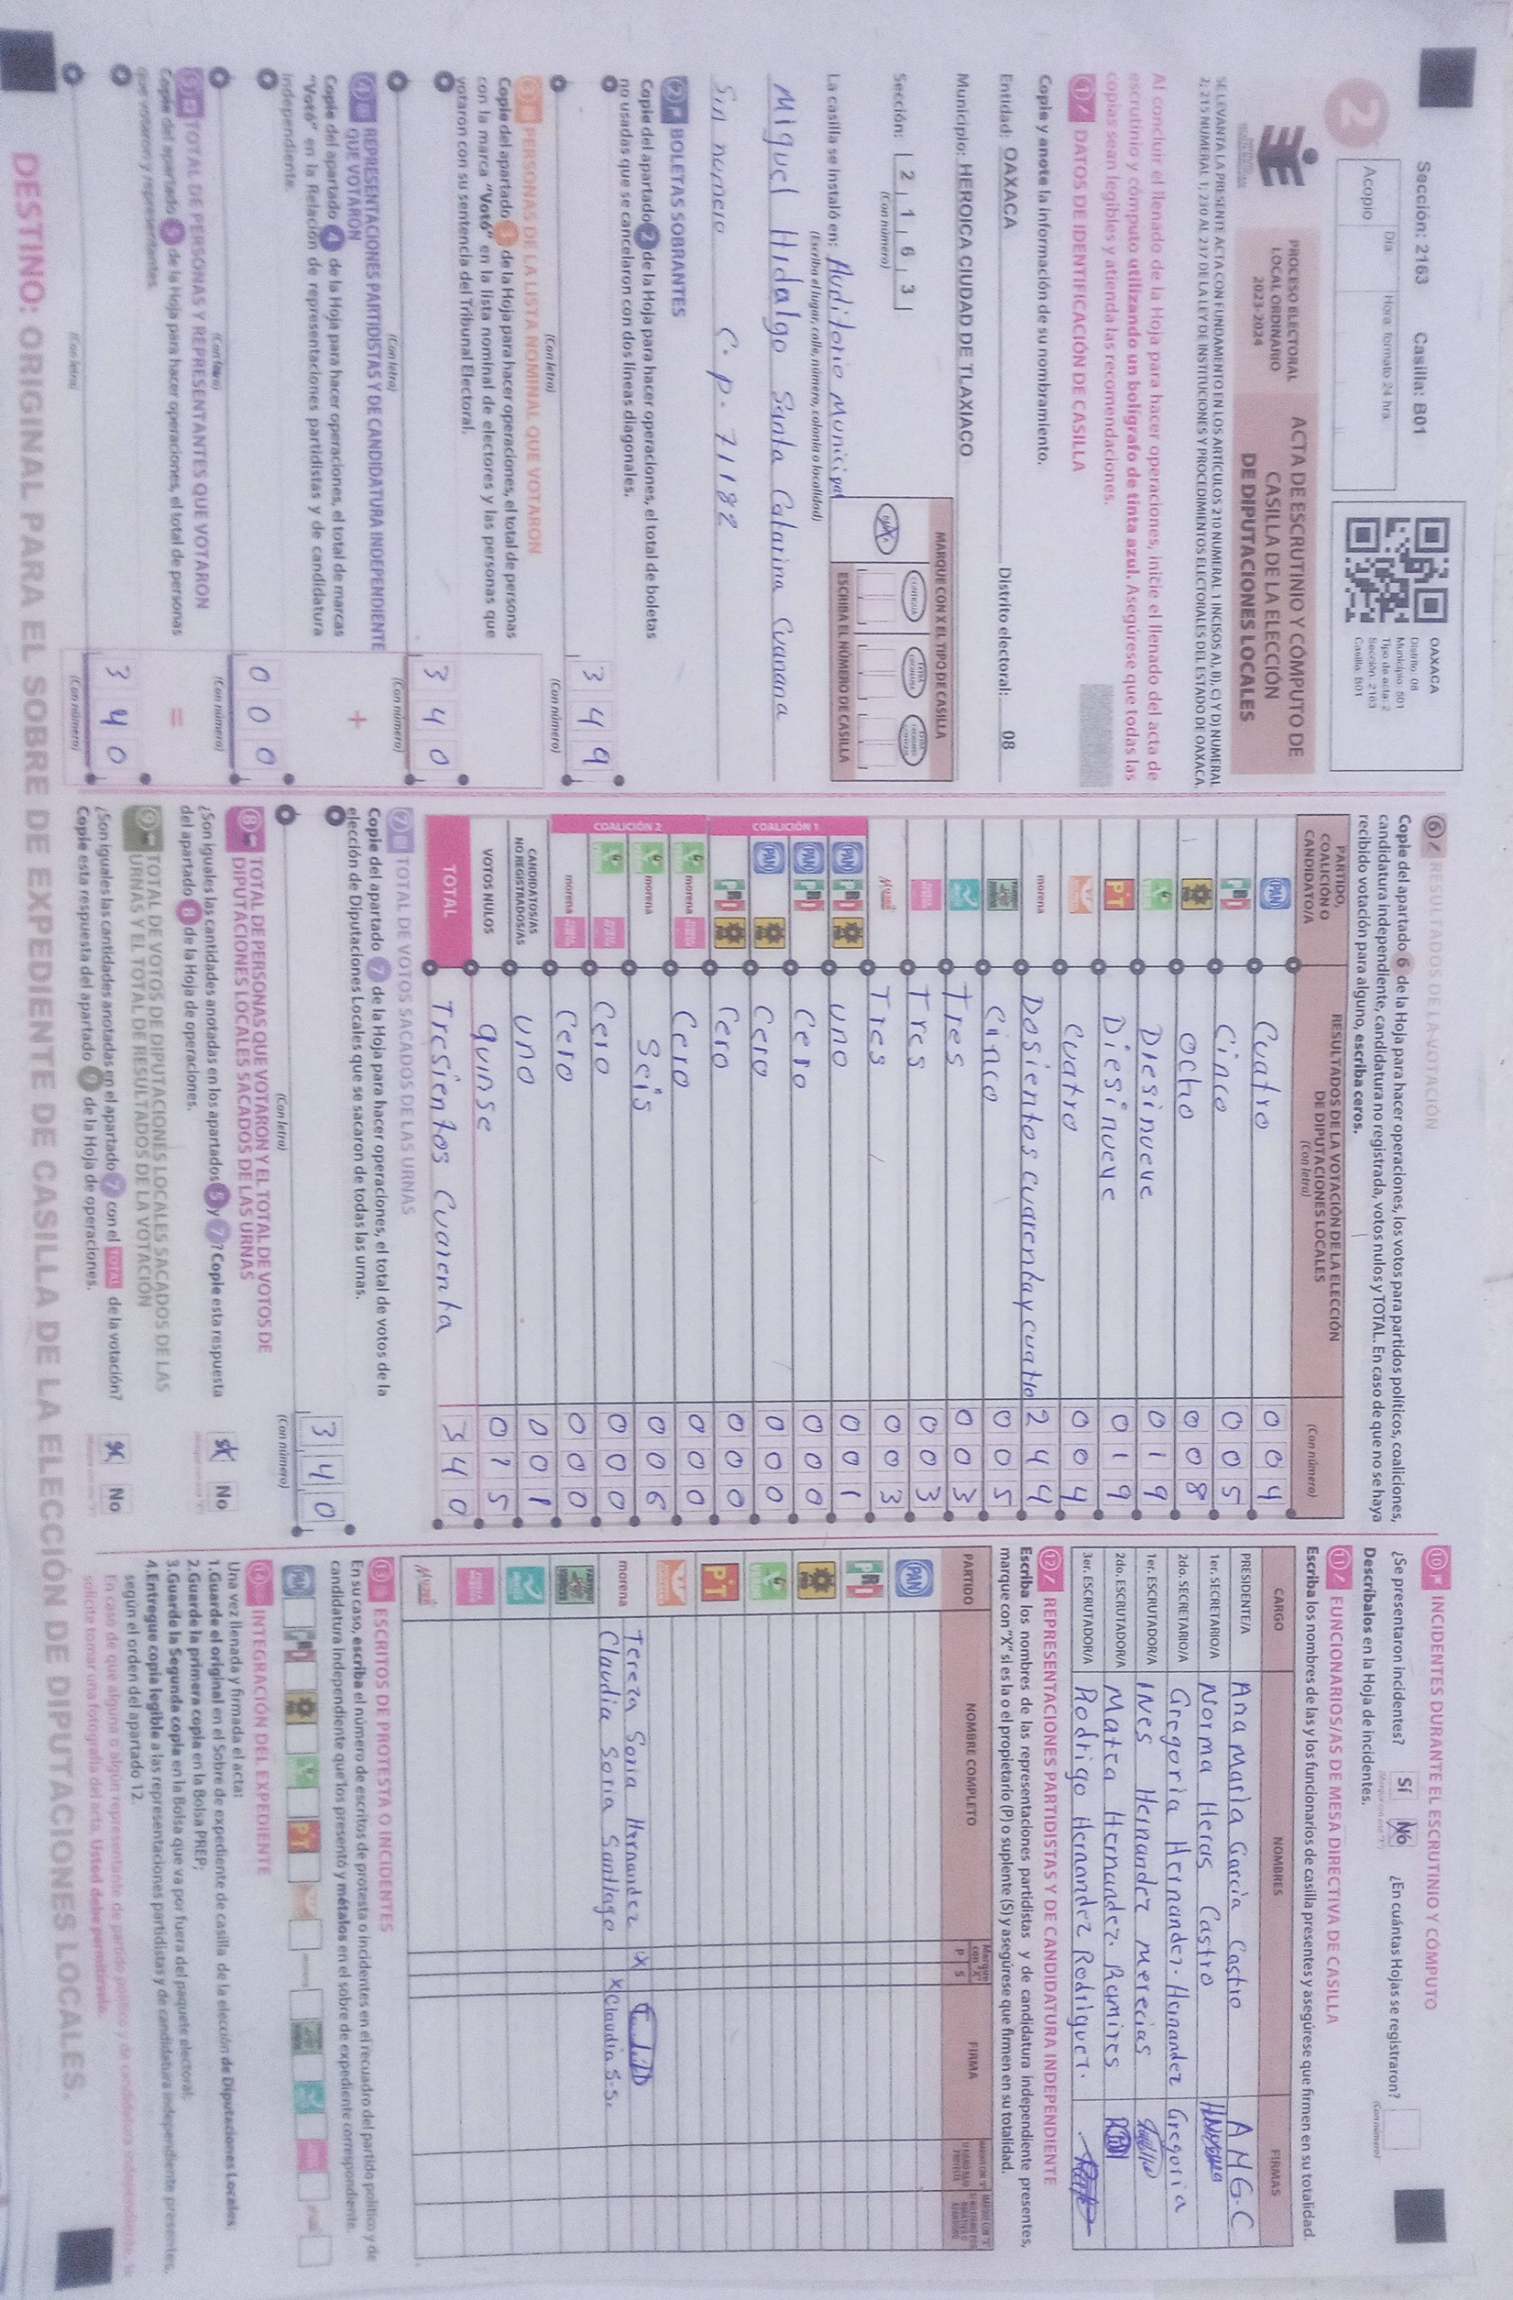 Sección: 2163 Casilla: B01
2
Día Hora: formato 24 hrs.
Acopio
OAXACA
Distrito: 08
Municipio: 501
Tipo de acta: 2
Sección: 2163
Casilla: B01
PROCESO ELECTORAL
LOCAL ORDINARIO
2023-2024
ACTA DE ESCRUTINIO Y CÓMPUTO DE
CASILLA DE LA ELECCIÓN
DE DIPUTACIONES LOCALES
SE LEVANTA LA PRESENTE ACTA CON FUNDAMENTO EN LOS ARTÍCULOS 210 NUMERAL 1 INCISOS A), B), C) Y D) NUMERAL
2; 215 NUMERAL 1; 230 AL 237 DE LA LEY DE INSTITUCIONES Y PROCEDIMIENTOS ELECTORALES DEL ESTADO DE OAXACA.
Al concluir el llenado de la Hoja para hacer operaciones, inicie el llenado del acta de
escrutinio y cómputo utilizando un bolígrafo de tinta azul. Asegúrese que todas las
copias sean legibles y atienda las recomendaciones.
1 DATOS DE IDENTIFICACIÓN DE CASILLA
Copie y anote la información de su nombramiento.
Entidad: OAXACA Distrito electoral: 08
Municipio: HEROICA CIUDAD DE TLAXIACO
Sección: 2 1 6 3
(Con número)
MARQUE CON X EL TIPO DE CASILLA
ESCRIBA EL NÚMERO DE CASILLA
La casilla se instaló en: Auditorio Municipal
(Escriba el lugar, calle, número, colonia o localidad)
Miguel Hidalgo Santa Catarina Cuanana
Sin numero C.P. 71182
2 BOLETAS SOBRANTES
Copie del apartado 2 de la Hoja para hacer operaciones, el total de boletas
no usadas que se cancelaron con dos líneas diagonales.
3 4 9
(Con letra) (Con número)
3 PERSONAS DE LA LISTA NOMINAL QUE VOTARON
Copie del apartado 3 de la Hoja para hacer operaciones, el total de personas
con la marca "Votó" en la lista nominal de electores y las personas que
votaron con su sentencia del Tribunal Electoral.
3 4 0
(Con letra) (Con número)
4 REPRESENTACIONES PARTIDISTAS Y DE CANDIDATURA INDEPENDIENTE
QUE VOTARON
Copie del apartado 4 de la Hoja para hacer operaciones, el total de marcas
"Votó" en la Relación de representaciones partidistas y de candidatura
independiente.
+
0 0 0
(Con letra) (Con número)
5 TOTAL DE PERSONAS Y REPRESENTANTES QUE VOTARON
Copie del apartado 5 de la Hoja para hacer operaciones, el total de personas
que votaron y representantes.
=
3 4 0
(Con letra) (Con número)
6 RESULTADOS DE LA VOTACIÓN
Copie del apartado 6 de la Hoja para hacer operaciones, los votos para partidos políticos, coaliciones,
candidatura independiente, candidatura no registrada, votos nulos y TOTAL. En caso de que no se haya
recibido votación para alguno, escriba ceros.
PARTIDO,
COALICIÓN O
CANDIDATO/A
RESULTADOS DE LA VOTACIÓN DE LA ELECCIÓN
DE DIPUTACIONES LOCALES
(Con letra) (Con número)
PAN Cuatro 0 0 4
PRI Cinco 0 0 5
PRD Ocho 0 0 8
Diesinueve 0 1 9
PT Diesinueve 0 1 9
Cuatro 0 0 4
morena Dosientos cuarenta y cuatro 2 4 4
Cinco 0 0 5
Tres 0 0 3
Tres 0 0 3
Tres 0 0 3
COALICIÓN 1
PAN PRI PRD uno 0 0 1
PAN PRI Cero 0 0 0
PAN PRD Cero 0 0 0
PRI PRD Cero 0 0 0
COALICIÓN 2
morena Cero 0 0 0
morena Seis 0 0 6
Cero 0 0 0
morena Cero 0 0 0
CANDIDATOS/AS
NO REGISTRADOS/AS uno 0 0 1
VOTOS NULOS quinse 0 1 5
TOTAL Tresientos Cuarenta 3 4 0
7 TOTAL DE VOTOS SACADOS DE LAS URNAS
Copie del apartado 7 de la Hoja para hacer operaciones, el total de votos de la
elección de Diputaciones Locales que se sacaron de todas las urnas.
3 4 0
(Con letra) (Con número)
8 TOTAL DE PERSONAS QUE VOTARON Y EL TOTAL DE VOTOS DE
DIPUTACIONES LOCALES SACADOS DE LAS URNAS
¿Son iguales las cantidades anotadas en los apartados 5 y 7? Copie esta respuesta
del apartado 8 de la Hoja de operaciones.
Sí No
9 TOTAL DE VOTOS DE DIPUTACIONES LOCALES SACADOS DE LAS
URNAS Y EL TOTAL DE RESULTADOS DE LA VOTACIÓN
¿Son iguales las cantidades anotadas en el apartado 7 con el TOTAL de la votación?
Copie esta respuesta del apartado 9 de la Hoja de operaciones.
Sí No
10 INCIDENTES DURANTE EL ESCRUTINIO Y CÓMPUTO
¿Se presentaron incidentes? Sí No ¿En cuántas Hojas se registraron?
(Con número)
Descríbalos en la Hoja de incidentes.
11 FUNCIONARIOS/AS DE MESA DIRECTIVA DE CASILLA
Escriba los nombres de las y los funcionarios de casilla presentes y asegúrese que firmen en su totalidad.
CARGO NOMBRES FIRMAS
PRESIDENTE/A Ana María García Castro A M G. C
1er. SECRETARIO/A Norma Heras Castro
2do. SECRETARIO/A Gregoria Hernandez Hernandez Gregoria
1er. ESCRUTADOR/A INES Hernandez merecias
2do. ESCRUTADOR/A Matea Hernandez Ramires
3er. ESCRUTADOR/A Rodrigo Hernandez Rodriguez.
12 REPRESENTACIONES PARTIDISTAS Y DE CANDIDATURA INDEPENDIENTE
Escriba los nombres de las representaciones partidistas y de candidatura independiente presentes,
marque con "X" si es la o el propietario (P) o suplente (S) y asegúrese que firmen en su totalidad.
PARTIDO NOMBRE COMPLETO P S FIRMA
PAN
PRI
PRD
PT
morena Tereza Soria Hernandez X
Claudia Soria Santiago X Claudia S.S.
13 ESCRITOS DE PROTESTA O INCIDENTES
En su caso, escriba el número de escritos de protesta o incidentes en el recuadro del partido político y de
candidatura independiente que los presentó y métalos en el sobre de expediente correspondiente.
PAN PRI PRD PT
14 INTEGRACIÓN DEL EXPEDIENTE
Una vez llenada y firmada el acta:
1.Guarde el original en el Sobre de expediente de casilla de la elección de Diputaciones Locales
2.Guarde la primera copia en la Bolsa PREP;
3.Guarde la Segunda copia en la Bolsa que va por fuera del paquete electoral;
4.Entregue copia legible a las representaciones partidistas y de candidatura independiente presentes,
según el orden del apartado 12.
En caso de que alguna o algún representante de partido político y de candidatura independiente, le
solicite tomar una fotografía del acta, Usted debe permitírselo.
DESTINO: ORIGINAL PARA EL SOBRE DE EXPEDIENTE DE CASILLA DE LA ELECCIÓN DE DIPUTACIONES LOCALES.